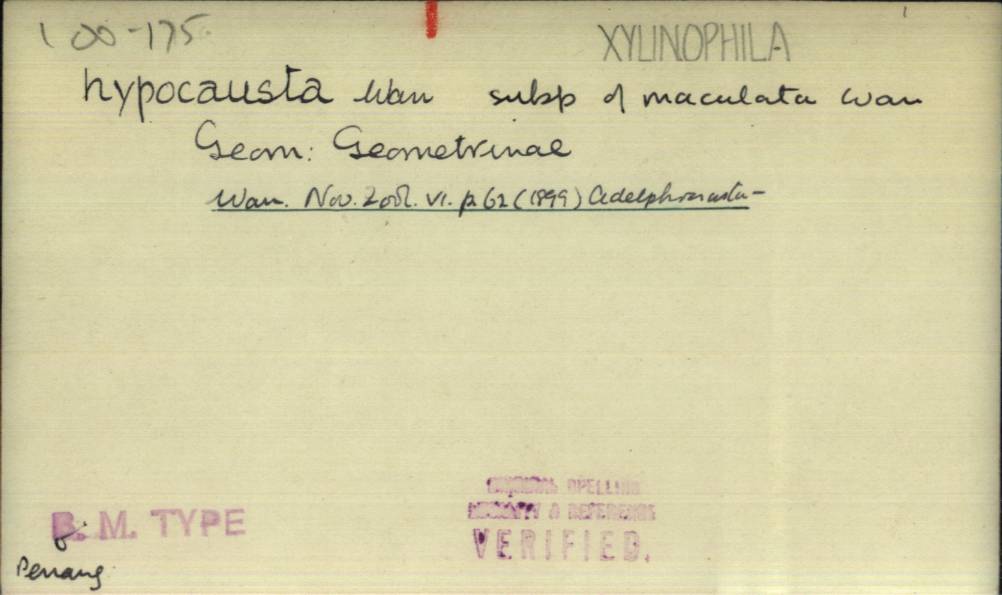 100-175
XYLINOPHILA
hypocausta Warr subsp of maculata Warr
Geom: Geometrinae
Warr. Nov. Zool. VI. p 62 (1899)
B. M. TYPE
SPELLING
& REFERENCE
VERIFIED.
Penang.